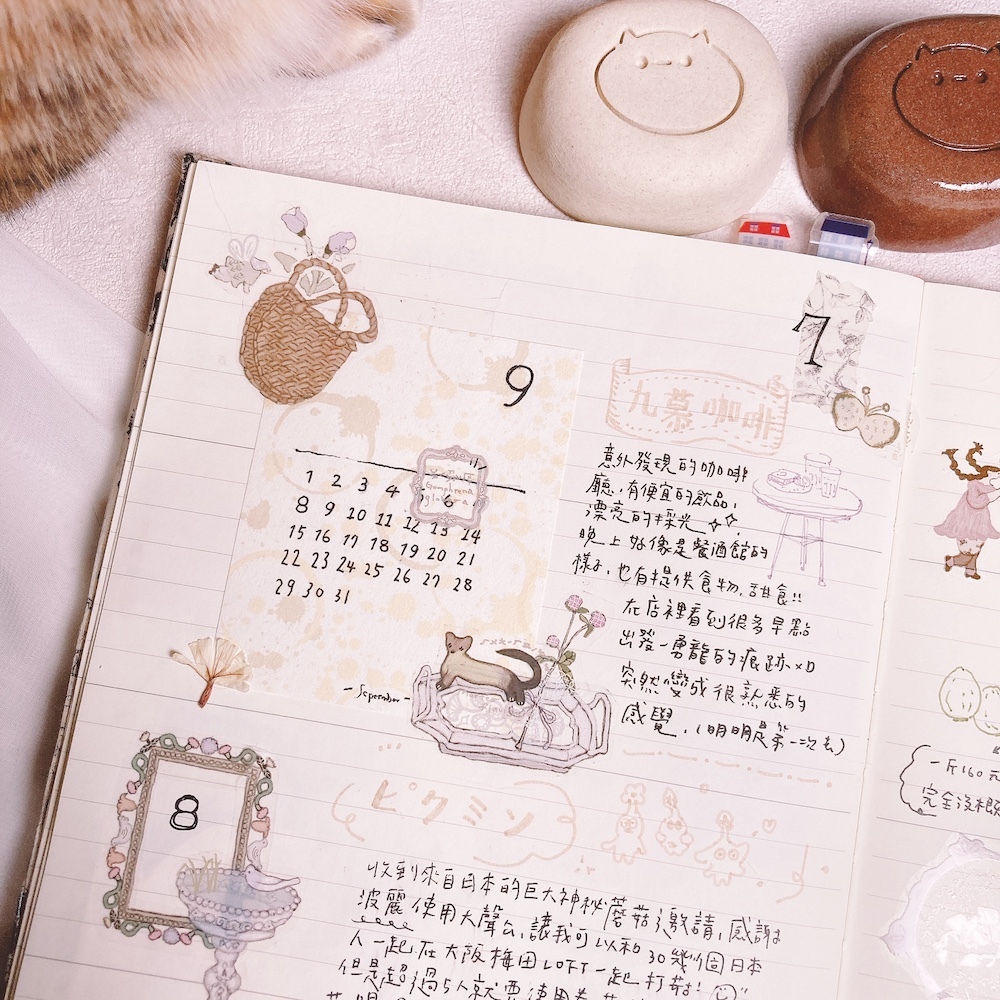 9
1 2 3 4 6
8 9 10 11 12 13 14
15 16 17 18 19 20 21
22 23 24 25 26 27 28
29 30 31
- September -
7
九慕咖啡
意外發現的咖啡
廳，有便宜的飲品，
漂亮的採光
晚上好像是餐酒館的
樣子，也有提供食物、甜食!!
在店裡看到很多早點
出發－勇龍的痕跡 xD
突然變成很熟悉的
感覺，(明明是第一次去)
8
ピクミン
收到來自日本的巨大神秘蘑菇邀請，感謝
波麗使用大聲公，讓我可以和30幾個日本
人一起在大阪梅田LOFT一起打菇!
但是超過5人就要使用券
一斤160元
完全沒概